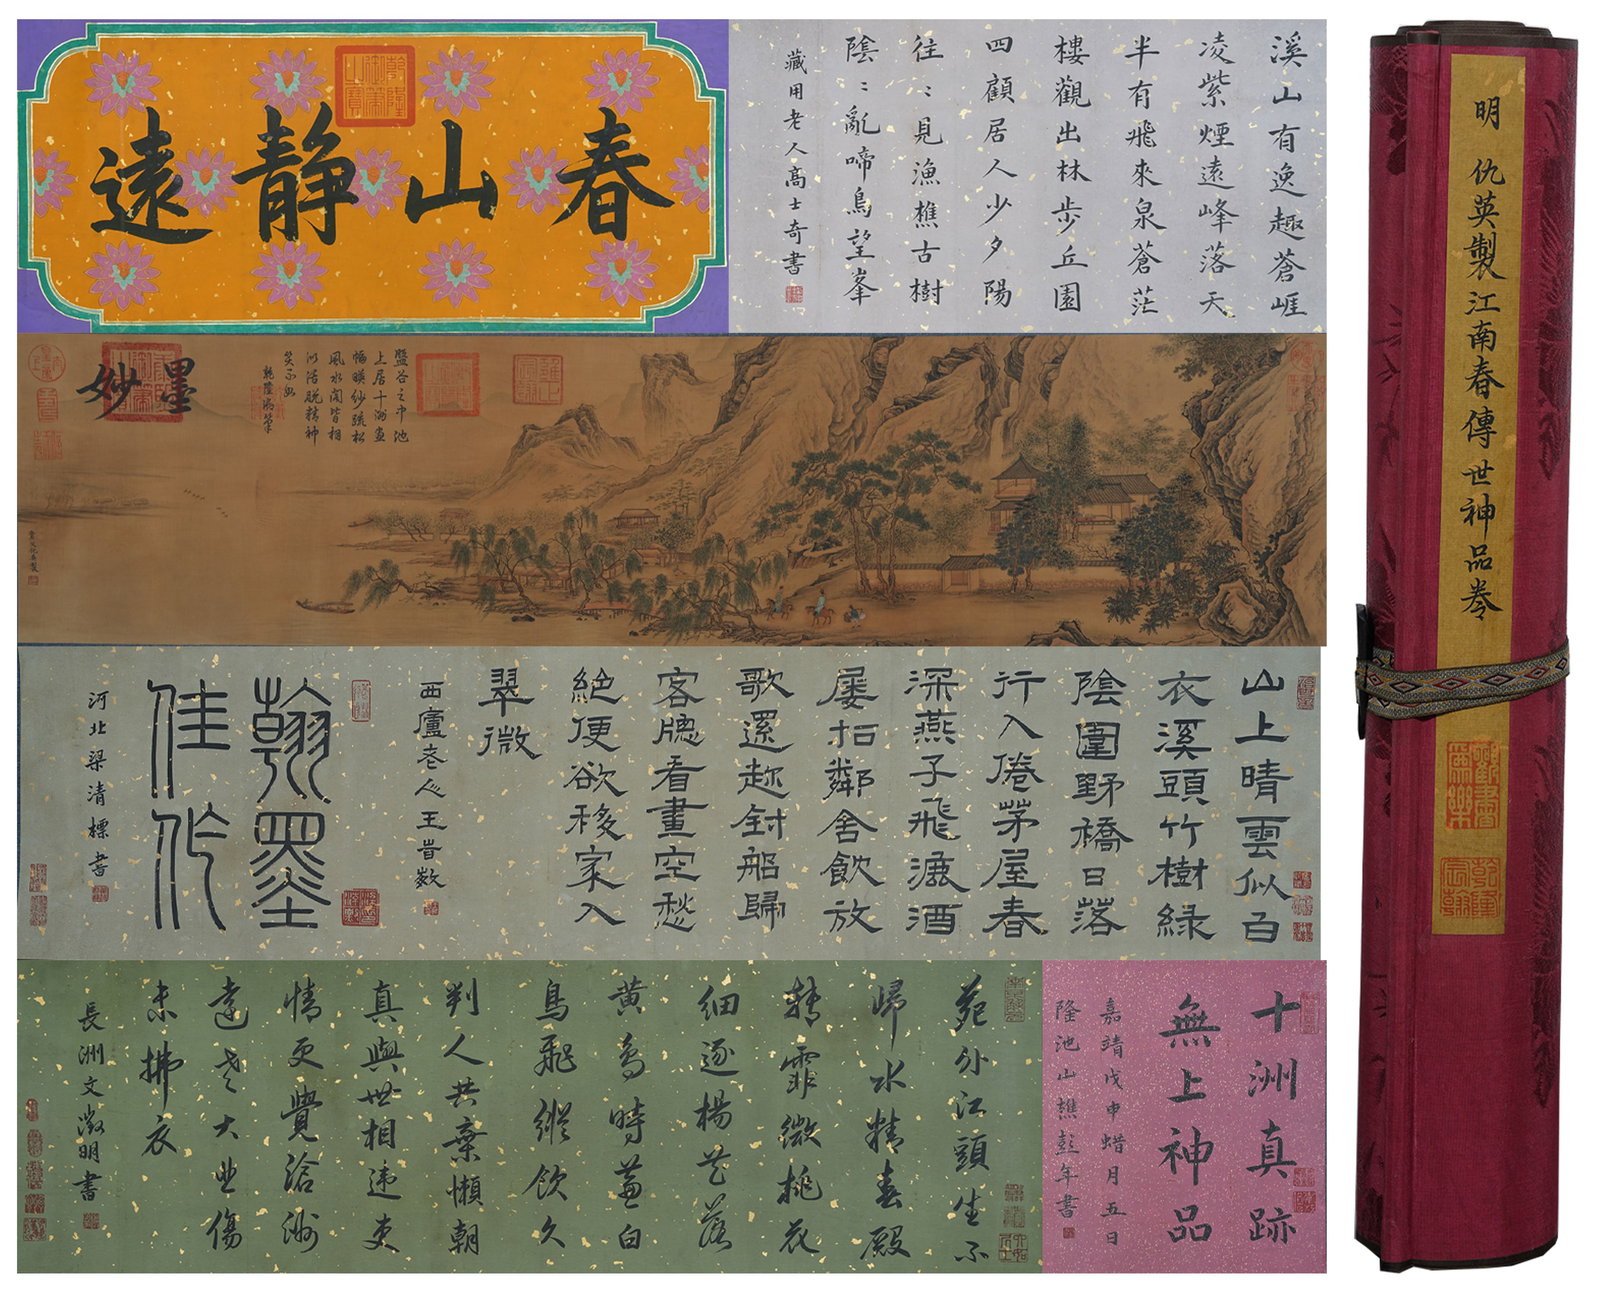 春山靜遠
乾隆御筆之寶
溪山有逸趣蒼崕
凌紫煙遠峰落天
半有飛來泉蒼茫
樓觀出林步丘園
四顧居人少夕陽
往〻見漁樵古樹
陰〻亂啼鳥望峯
藏用老人高士奇書
墨妙
盤谷之中池
上居十洲畫
幅暎紗疏松
風水閣皆相
似活脫精神
笑不如
乾隆御筆
山上晴雲似白
衣溪頭竹樹綠
陰圍野橋日落
行入倦茅屋春
深燕子飛漉酒
屢招鄰舍飲放
歌還趂釣船歸
客牕看畫空愁
絕便欲移家入
翠微
西廬老人王旹敏
翰墨
佳作
河北梁清標書
十洲真跡
無上神品
嘉靖戊申蜡月五日
隆池山樵彭年書
苑外江頭坐不
歸水精春殿
轉霏微桃花
細逐楊花落
黃鳥時兼白
鳥飛縱飲久
判人共棄懶朝
真與世相違吏
情更覺滄洲
遠老大悲傷
未拂衣
長洲文徵明書
明 仇英製江南春傳世神品卷